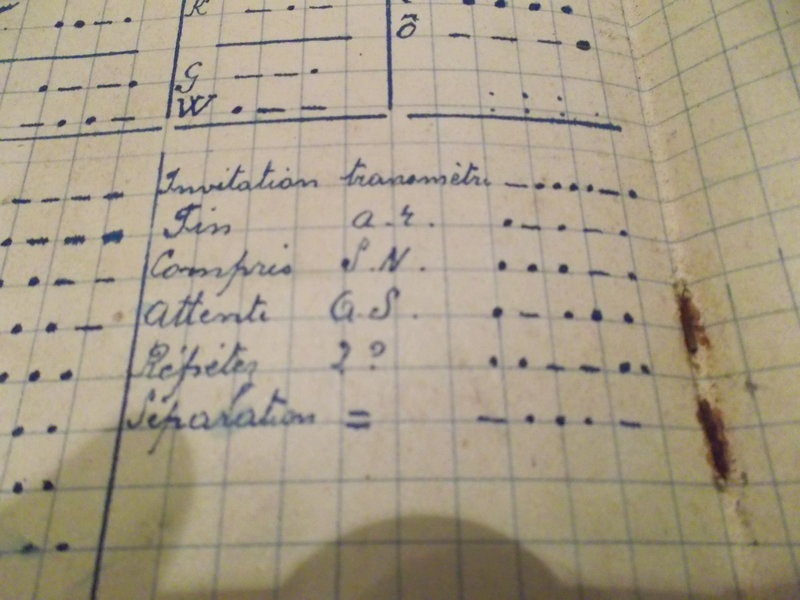 . . — .
K — . —
. . . .
Õ — — — .
. — — .
G — — .
— . . —
W . — —
: : : .
— — — — Invitation transmètre — . . . . — .
. — — — Fin a.r. . — . — .
. . — — Compris S.N. . . . — .
. . — Attente a.S. . — . . .
. . . Répétez 2? . . — — . .
. . Séparation = — . . . —
. .
. .